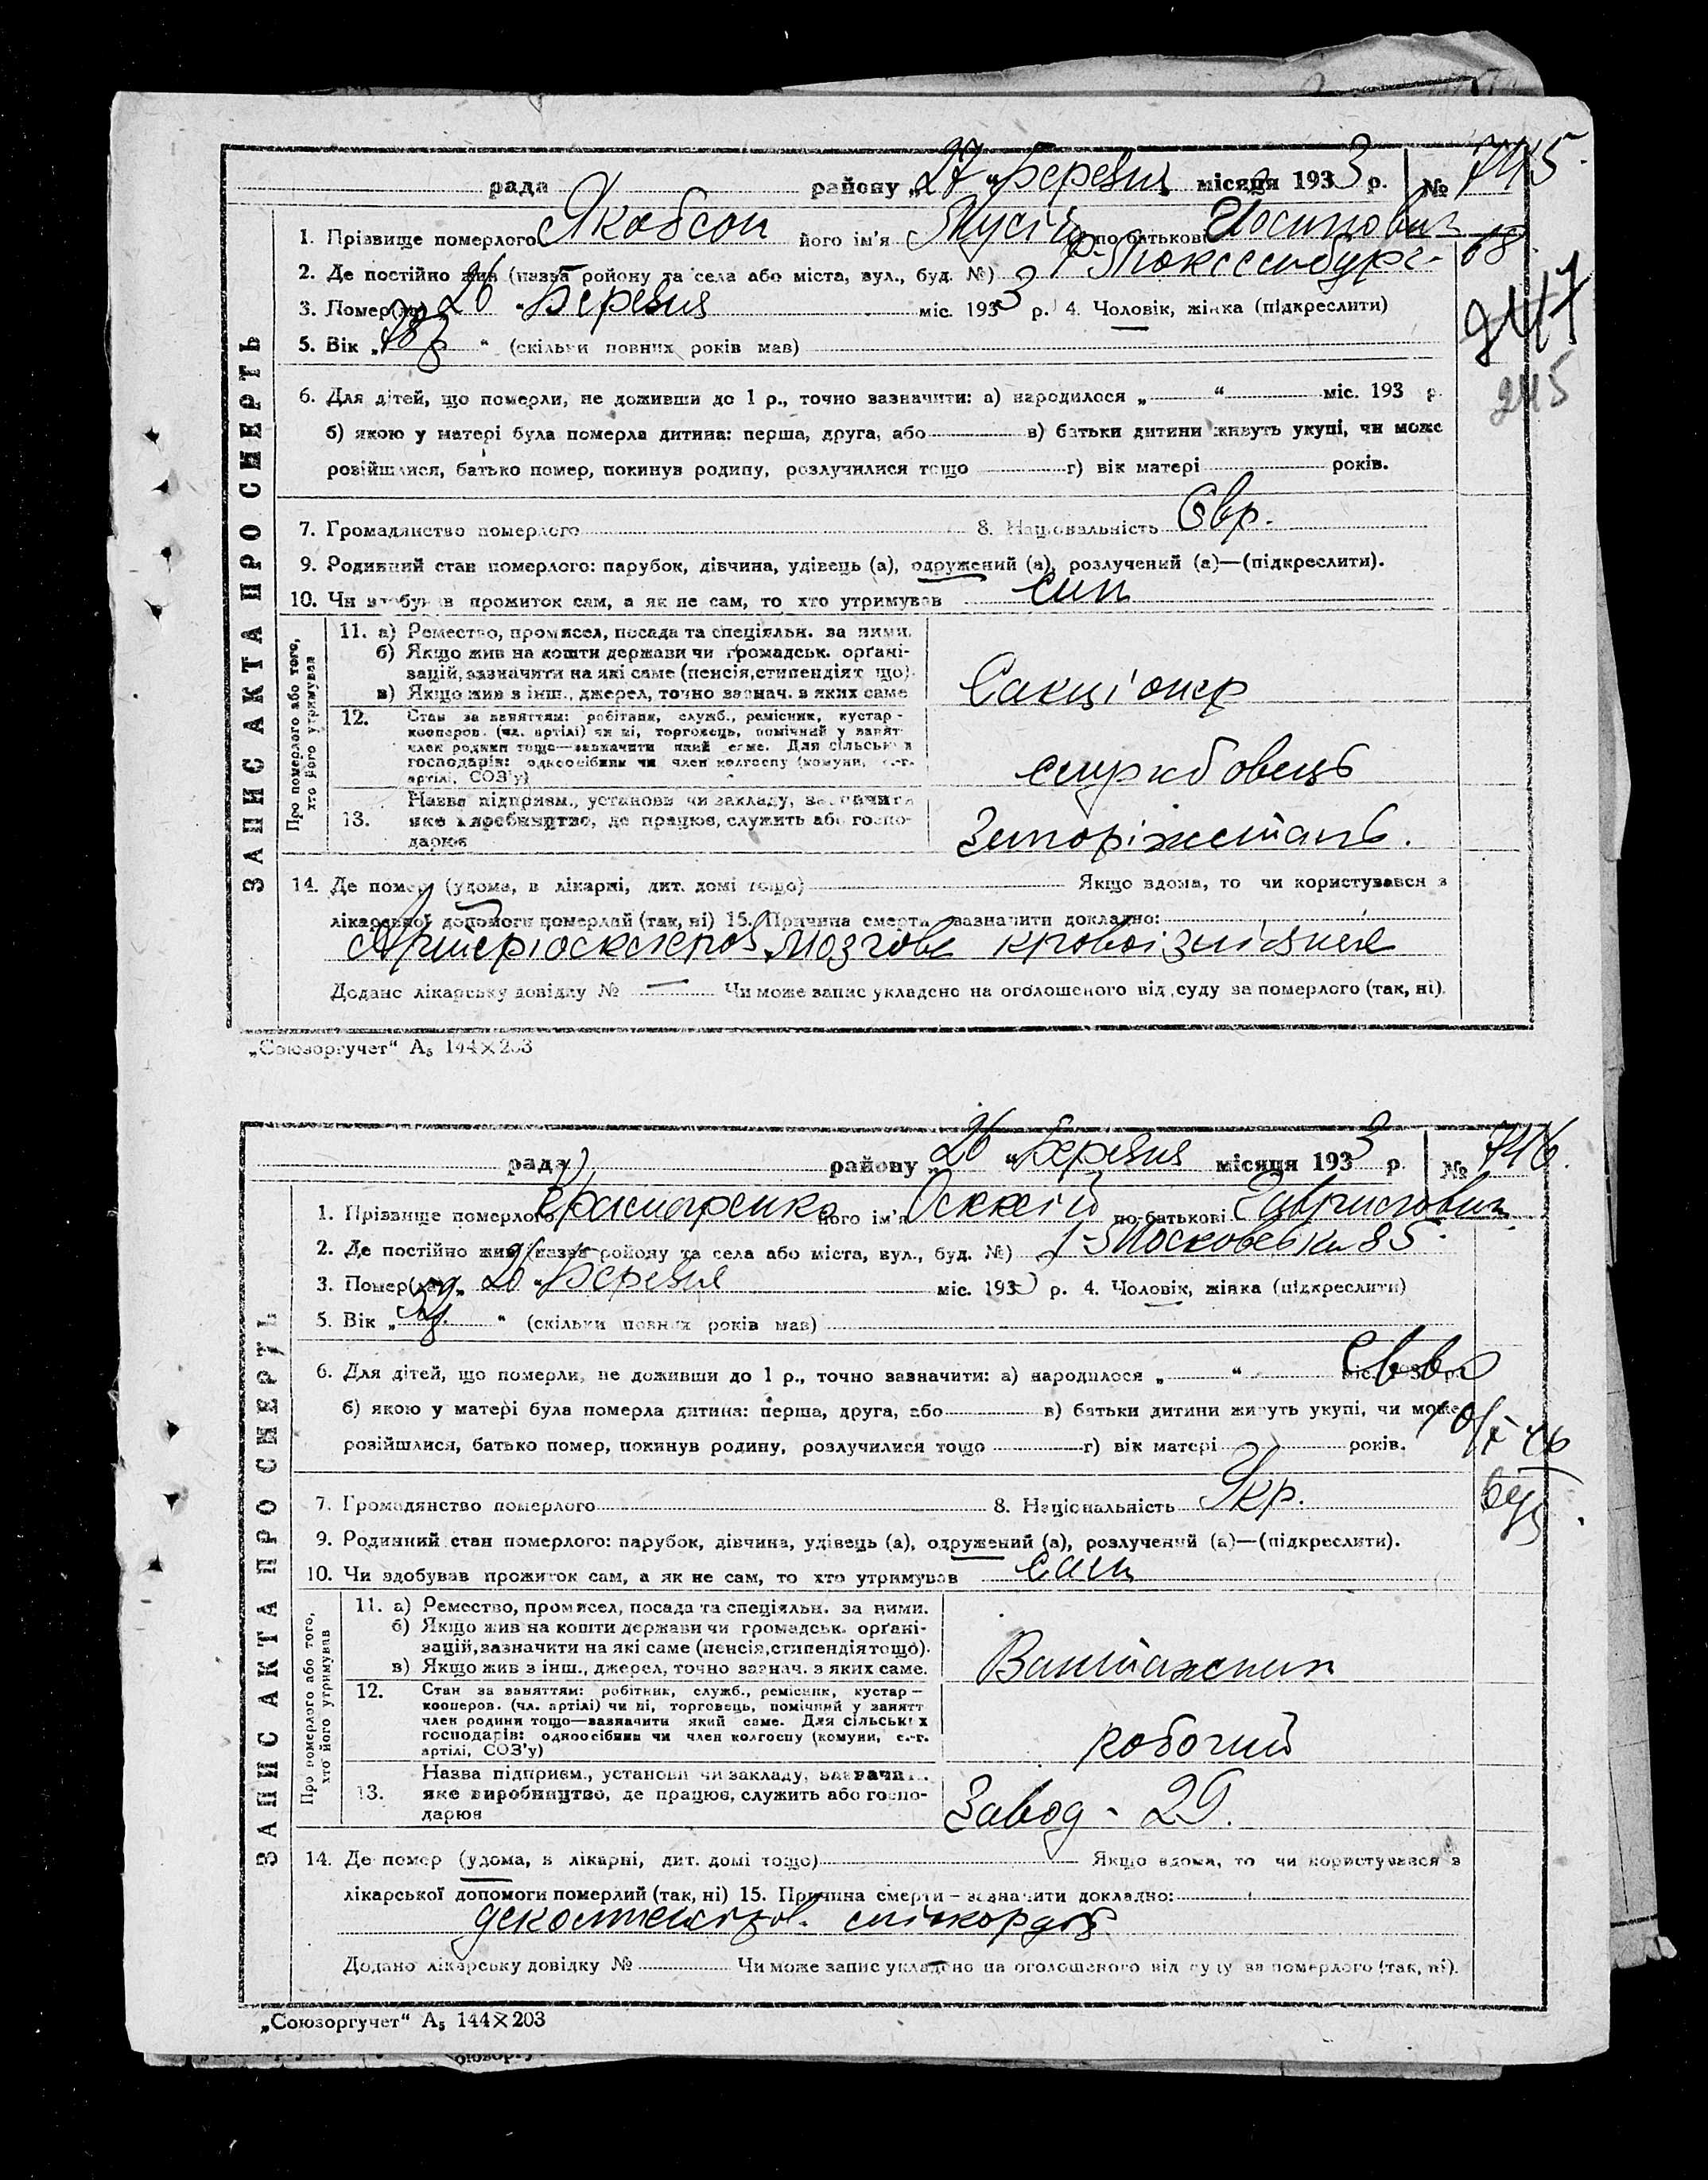 рада району „27 “ Березня місяця 1933 р. № 745
ЗАПИС АКТА ПРО СМЕРТЬ
1. Прізвище померлого Якобсон його ім'я Мусій по батькові Йосипович
2. Де постійно жив (назва району та села або міста, вул., буд. №) Р-Люксембург- 68
3. Помер(ла) „26 “ Березня міс. 1933 р. 4. Чоловік, жінка (підкреслити)
5. Вік „ “ (скільки повних років мав)
245
6. Для дітей, що померли, не доживши до 1 р., точно зазначити: а) народилося „ “ міс. 193 р.
б) якою у матері була померла дитина: перша, друга, або в) батьки дитини живуть укупі, чи може
розійшлися, батько помер, покинув родину, розлучилися тощо г) вік матері років.
7. Громадянство померлого 8. Національність Євр.
9. Родинний стан померлого: парубок, дівчина, удівець (а), одружений (а), розлучений (а)—(підкреслити).
10. Чи здобував прожиток сам, а як не сам, то хто утримував син
Про померлого або того, хто його утримував
11. а) Ремество, промисел, посада та спеціяльн. за ними.
б) Якщо жив на кошти держави чи громадськ. орґані-
зацій, зазначити на які саме (пенсія, стипендія т що).
в) Якщо жив з інш., джерел, точно зазнач. з яких саме
Сакціонер
12. Стан за заняттям: робітник, служб., ремісник, кустар-
кооперов. (чл. артілі) чи ні, торговець, помічний у занят
член родини тощо—зазначити який саме. Для сільських
господарів: одноосібник чи член колгоспу (комуни, с.-г.
артілі, СОЗ'у)
службовець
Назва підприєм., установи чи закладу, зазначити
13. яке виробництво, де працює, служить або госпо-
дарює
Запоріжсталь.
14. Де помер (удома, в лікарні, дит. домі тощо) Якщо вдома, то чи користувався з
лікарської допомоги померлий (так, ні) 15. Причина смерти зазначити докладно:
Артеріосклероз, мозгове кровоізліяние
Додано лікарську довідку № — Чи може запис укладено на оголошеного від суду за померлого (так, ні).
„Союзоргучет“ А₅ 144×203
рада району „26 “ Березня місяця 1933 р. № 746.
ЗАПИС АКТА ПРО СМЕРТЬ
1. Прізвище померлого його ім'я по батькові Гаврилович
2. Де постійно жив (назва району та села або міста, вул., буд. №) 1-Московська 85.
3. Помер(ла) „26 “ Березня міс. 1933 р. 4. Чоловік, жінка (підкреслити)
5. Вік „ “ (скільки повних років мав)
6. Для дітей, що померли, не доживши до 1 р., точно зазначити: а) народилося „ “ міс. 193 р.
б) якою у матері була померла дитина: перша, друга, або в) батьки дитини живуть укупі, чи може
розійшлися, батько помер, покинув родину, розлучилися тощо г) вік матері років.
7. Громадянство померлого 8. Національність Укр.
9. Родинний стан померлого: парубок, дівчина, удівець (а), одружений (а), розлучений (а)—(підкреслити).
10. Чи здобував прожиток сам, а як не сам, то хто утримував сам
Про померлого або того, хто його утримував
11. а) Ремество, промисел, посада та спеціяльн. за ними.
б) Якщо жив на кошти держави чи громадськ. орґані-
зацій, зазначити на які саме (пенсія, стипендія тощо).
в) Якщо жив з інш., джерел, точно зазнач. з яких саме.
Вантажник
12. Стан за заняттям: робітник, служб., ремісник, кустар—
кооперов. (чл. артілі) чи ні, торговець, помічний у занятт
член родини тощо—зазначити який саме. Для сільських
господарів: одноосібник чи член колгоспу (комуни, с.-г.
артілі, СОЗ'у)
робочий
Назва підприєм., установи чи закладу, зазначити
13. яке виробництво, де працює, служить або госпо-
дарює
Завод - 29.
14. Де помер (удома, в лікарні, дит. домі тощо) Якщо вдома, то чи користувався з
лікарської допомоги померлий (так, ні) 15. Причина смерти — зазначити докладно:
декомпенсов. міокордіт.
Додано лікарську довідку № Чи може запис укладено на оголошеного від суду за померлого (так, ні).
„Союзоргучет“ А₅ 144×203